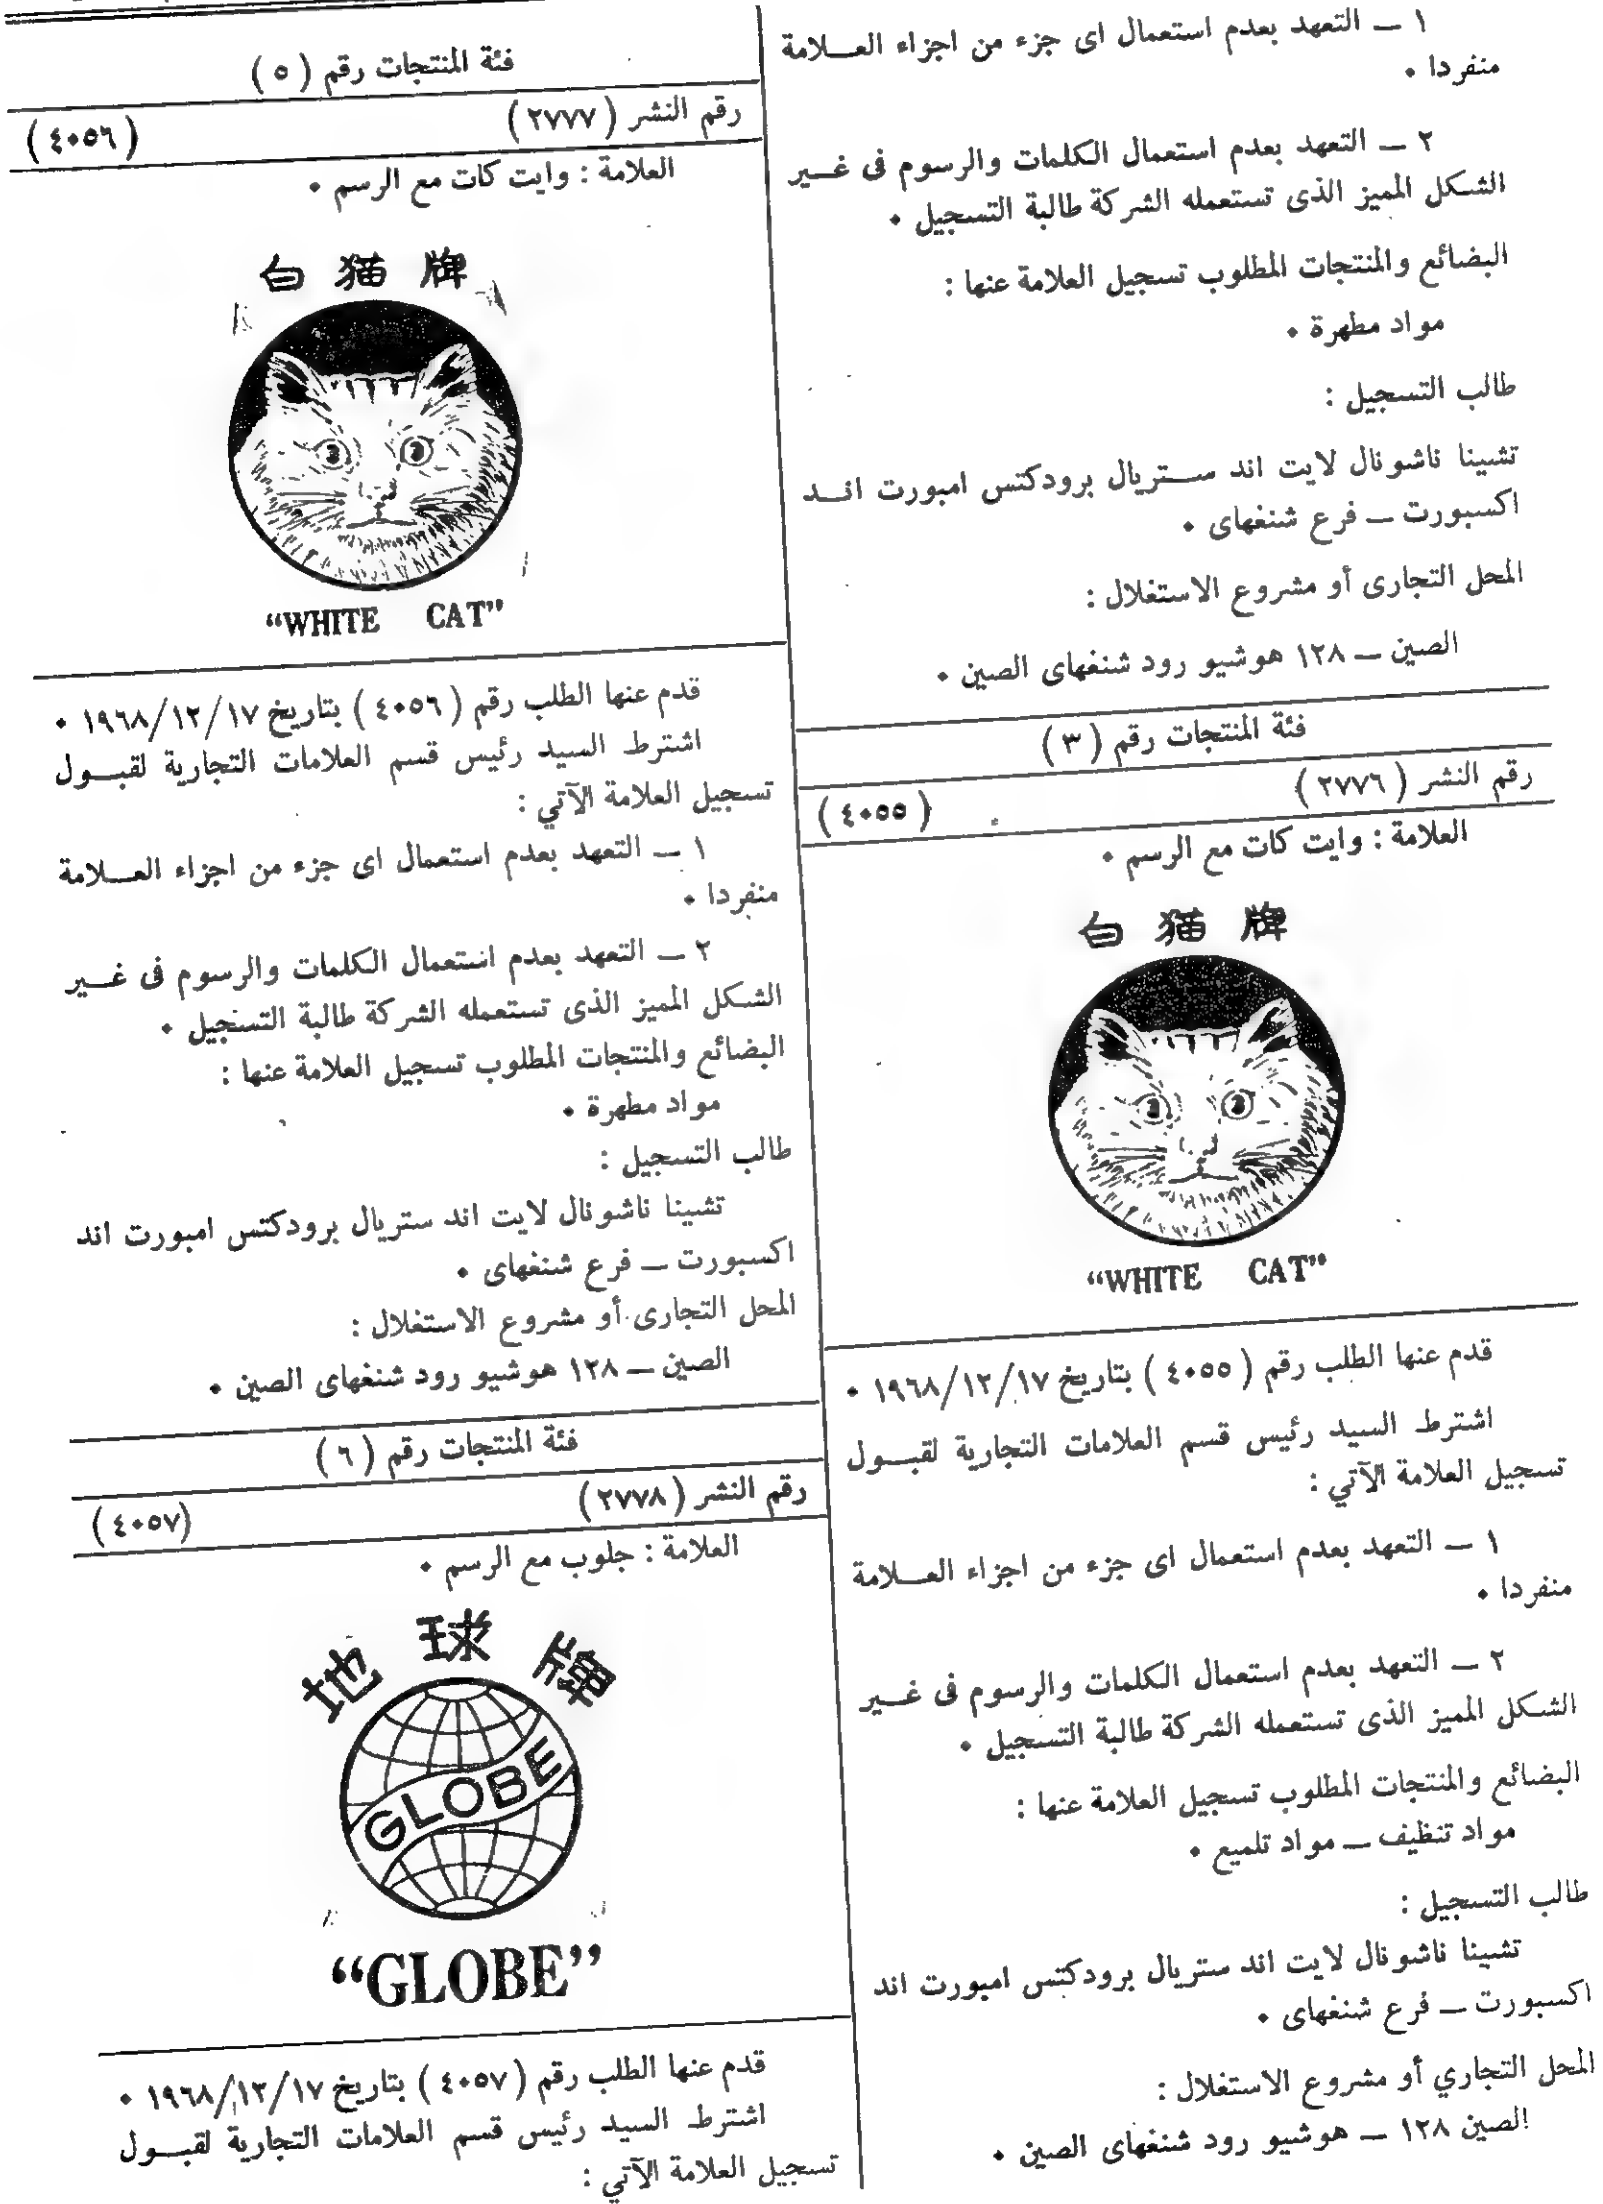 ١ ـ التعهد بعدم استعمال اى جزء من اجزاء العـــلامة
منفردا ٠
٢ ـ التعهد بعدم استعمال الكلمات والرسوم فى غـــير
الشكل المميز الذى تستعمله الشركة طالبة التسجيل ٠
البضائع والمنتجات المطلوب تسجيل العلامة عنها :
مواد مطهرة ٠
طالب التسجيل :
تشينا ناشونال لايت اند ســتريال برودكتس امبورت انــد
اكسبورت ـ فرع شنغهاى ٠
المحل التجارى أو مشروع الاستغلال :
الصين ـ ١٢٨ هوشيو رود شنغهاى الصين ٠
فئة المنتجات رقم ( ٣ )
رقم النشر ( ٢٧٧٦ ) ( ٤٠٥٥ )
العلامة : وايت كات مع الرسم ٠
白 猫 牌
“WHITE CAT”
قدم عنها الطلب رقم ( ٤٠٥٥ ) بتاريخ ١٩٦٨/١٢/١٧ ٠
اشترط السيد رئيس قسم العلامات التجارية لقبـــول
تسجيل العلامة الآتي :
١ ـ التعهد بعدم استعمال اى جزء من اجزاء العـــلامة
منفردا ٠
٢ ـ التعهد بعدم استعمال الكلمات والرسوم فى غـــير
الشكل المميز الذى تستعمله الشركة طالبة التسجيل ٠
البضائع والمنتجات المطلوب تسجيل العلامة عنها :
مواد تنظيف ـ مواد تلميع ٠
طالب التسجيل :
تشينا ناشونال لايت اند ستريال برودكتس امبورت اند
اكسبورت ـ فرع شنغهاى ٠
المحل التجاري أو مشروع الاستغلال :
الصين ١٢٨ ـ هوشيو رود شنغهاى الصين ٠
فئة المنتجات رقم ( ٥ )
رقم النشر ( ٢٧٧٧ ) ( ٤٠٥٦ )
العلامة : وايت كات مع الرسم ٠
白 猫 牌
“WHITE CAT”
قدم عنها الطلب رقم ( ٤٠٥٦ ) بتاريخ ١٩٦٨/١٢/١٧ ٠
اشترط السيد رئيس قسم العلامات التجارية لقبـــول
تسجيل العلامة الآتي :
١ ـ التعهد بعدم استعمال اى جزء من اجزاء العـــلامة
منفردا ٠
٢ ـ التعهد بعدم استعمال الكلمات والرسوم فى غـــير
الشكل المميز الذى تستعمله الشركة طالبة التسجيل ٠
البضائع والمنتجات المطلوب تسجيل العلامة عنها :
مواد مطهرة ٠
طالب التسجيل :
تشينا ناشونال لايت اند ستريال برودكتس امبورت اند
اكسبورت ـ فرع شنغهاى ٠
المحل التجارى أو مشروع الاستغلال :
الصين ـ ١٢٨ هوشيو رود شنغهاى الصين ٠
فئة المنتجات رقم ( ٦ )
رقم النشر ( ٢٧٧٨ ) ( ٤٠٥٧ )
العلامة : جلوب مع الرسم ٠
地 球 牌
GLOBE
“GLOBE”
قدم عنها الطلب رقم ( ٤٠٥٧ ) بتاريخ ١٩٦٨/١٢/١٧ ٠
اشترط السيد رئيس قسم العلامات التجارية لقبـــول
تسجيل العلامة الآتي :